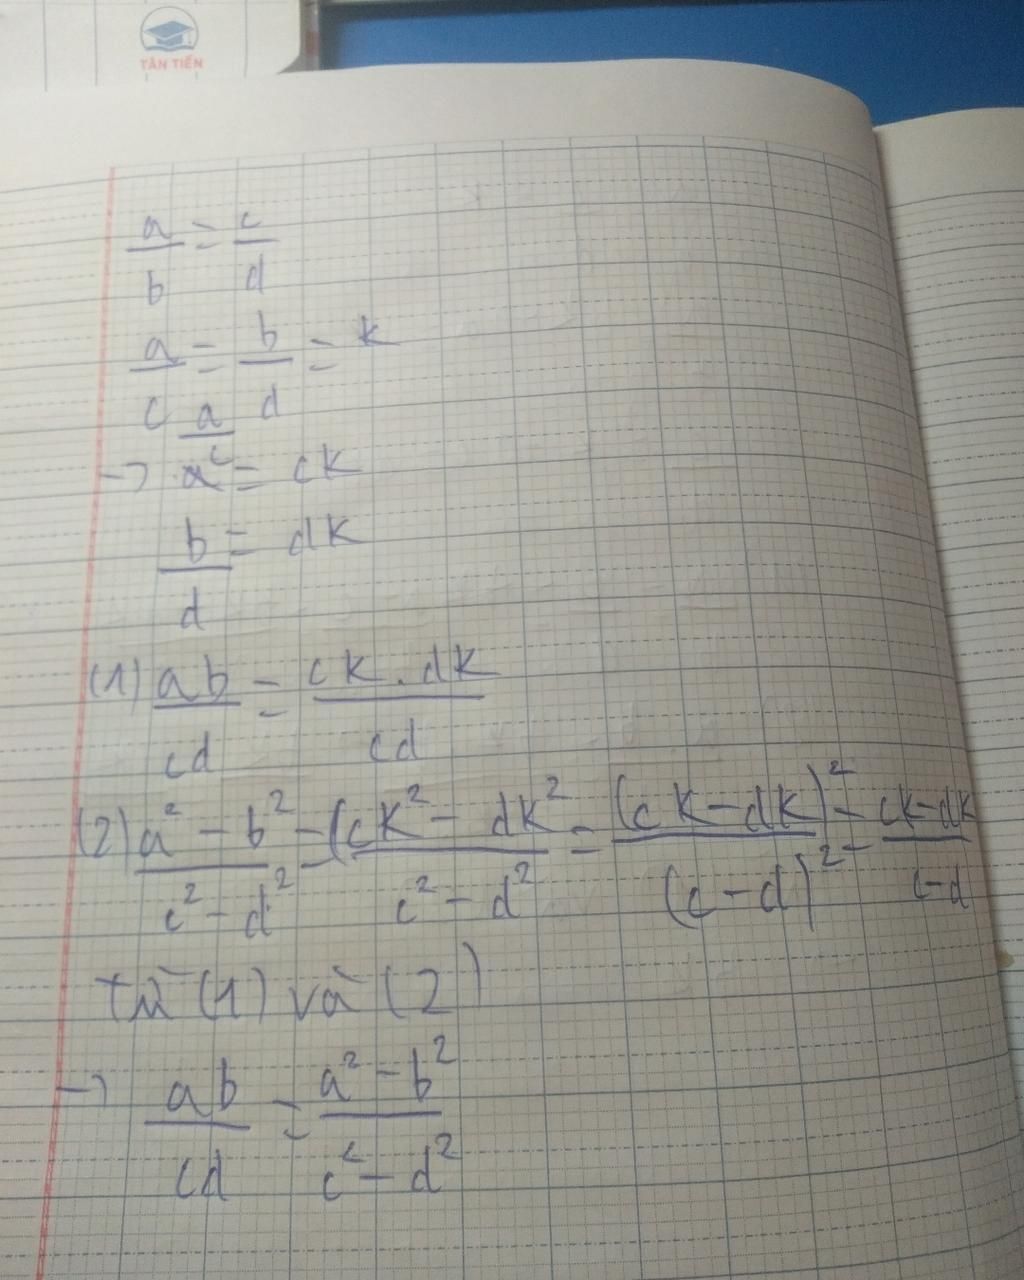 TÂN TIẾN
a/b = c/d
a/c = b/d = k
a
→ a² = ck
b/d = dk
(1) ab/cd = ck.dk/cd
(2) a² - b²/c² - d² = (ck² - dk²/c² - d² = (ck - dk)²/(c - d)² = ck - dk/c - d
từ (1) và (2)
→ ab/cd = a² - b²/c² - d²